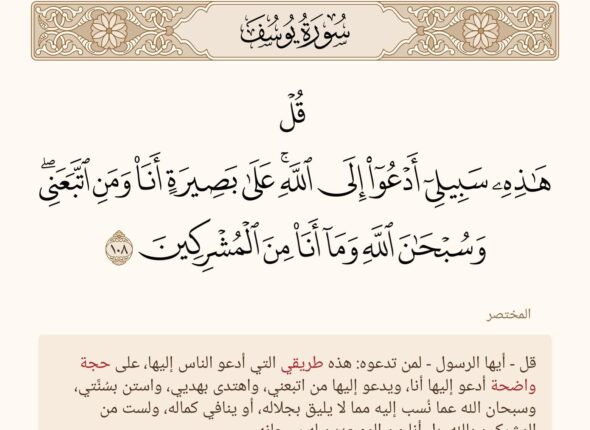 سُورَةُ يُوسُفَ
قُلۡ
هَٰذِهِۦ سَبِيلِيٓ أَدۡعُوٓاْ إِلَى ٱللَّهِۚ عَلَىٰ بَصِيرَةٍ أَنَا۠ وَمَنِ ٱتَّبَعَنِيۖ
وَسُبۡحَٰنَ ٱللَّهِ وَمَآ أَنَا۠ مِنَ ٱلۡمُشۡرِكِينَ ١٠٨
المختصر
قل - أيها الرسول - لمن تدعوه: هذه طريقي التي أدعو الناس إليها، على حجة
واضحة أدعو إليها أنا، ويدعو إليها من اتبعني، واهتدى بهديي، واستن بسُنَّتي،
وسبحان الله عما نُسب إليه مما لا يليق بجلاله، أو ينافي كماله، ولست من